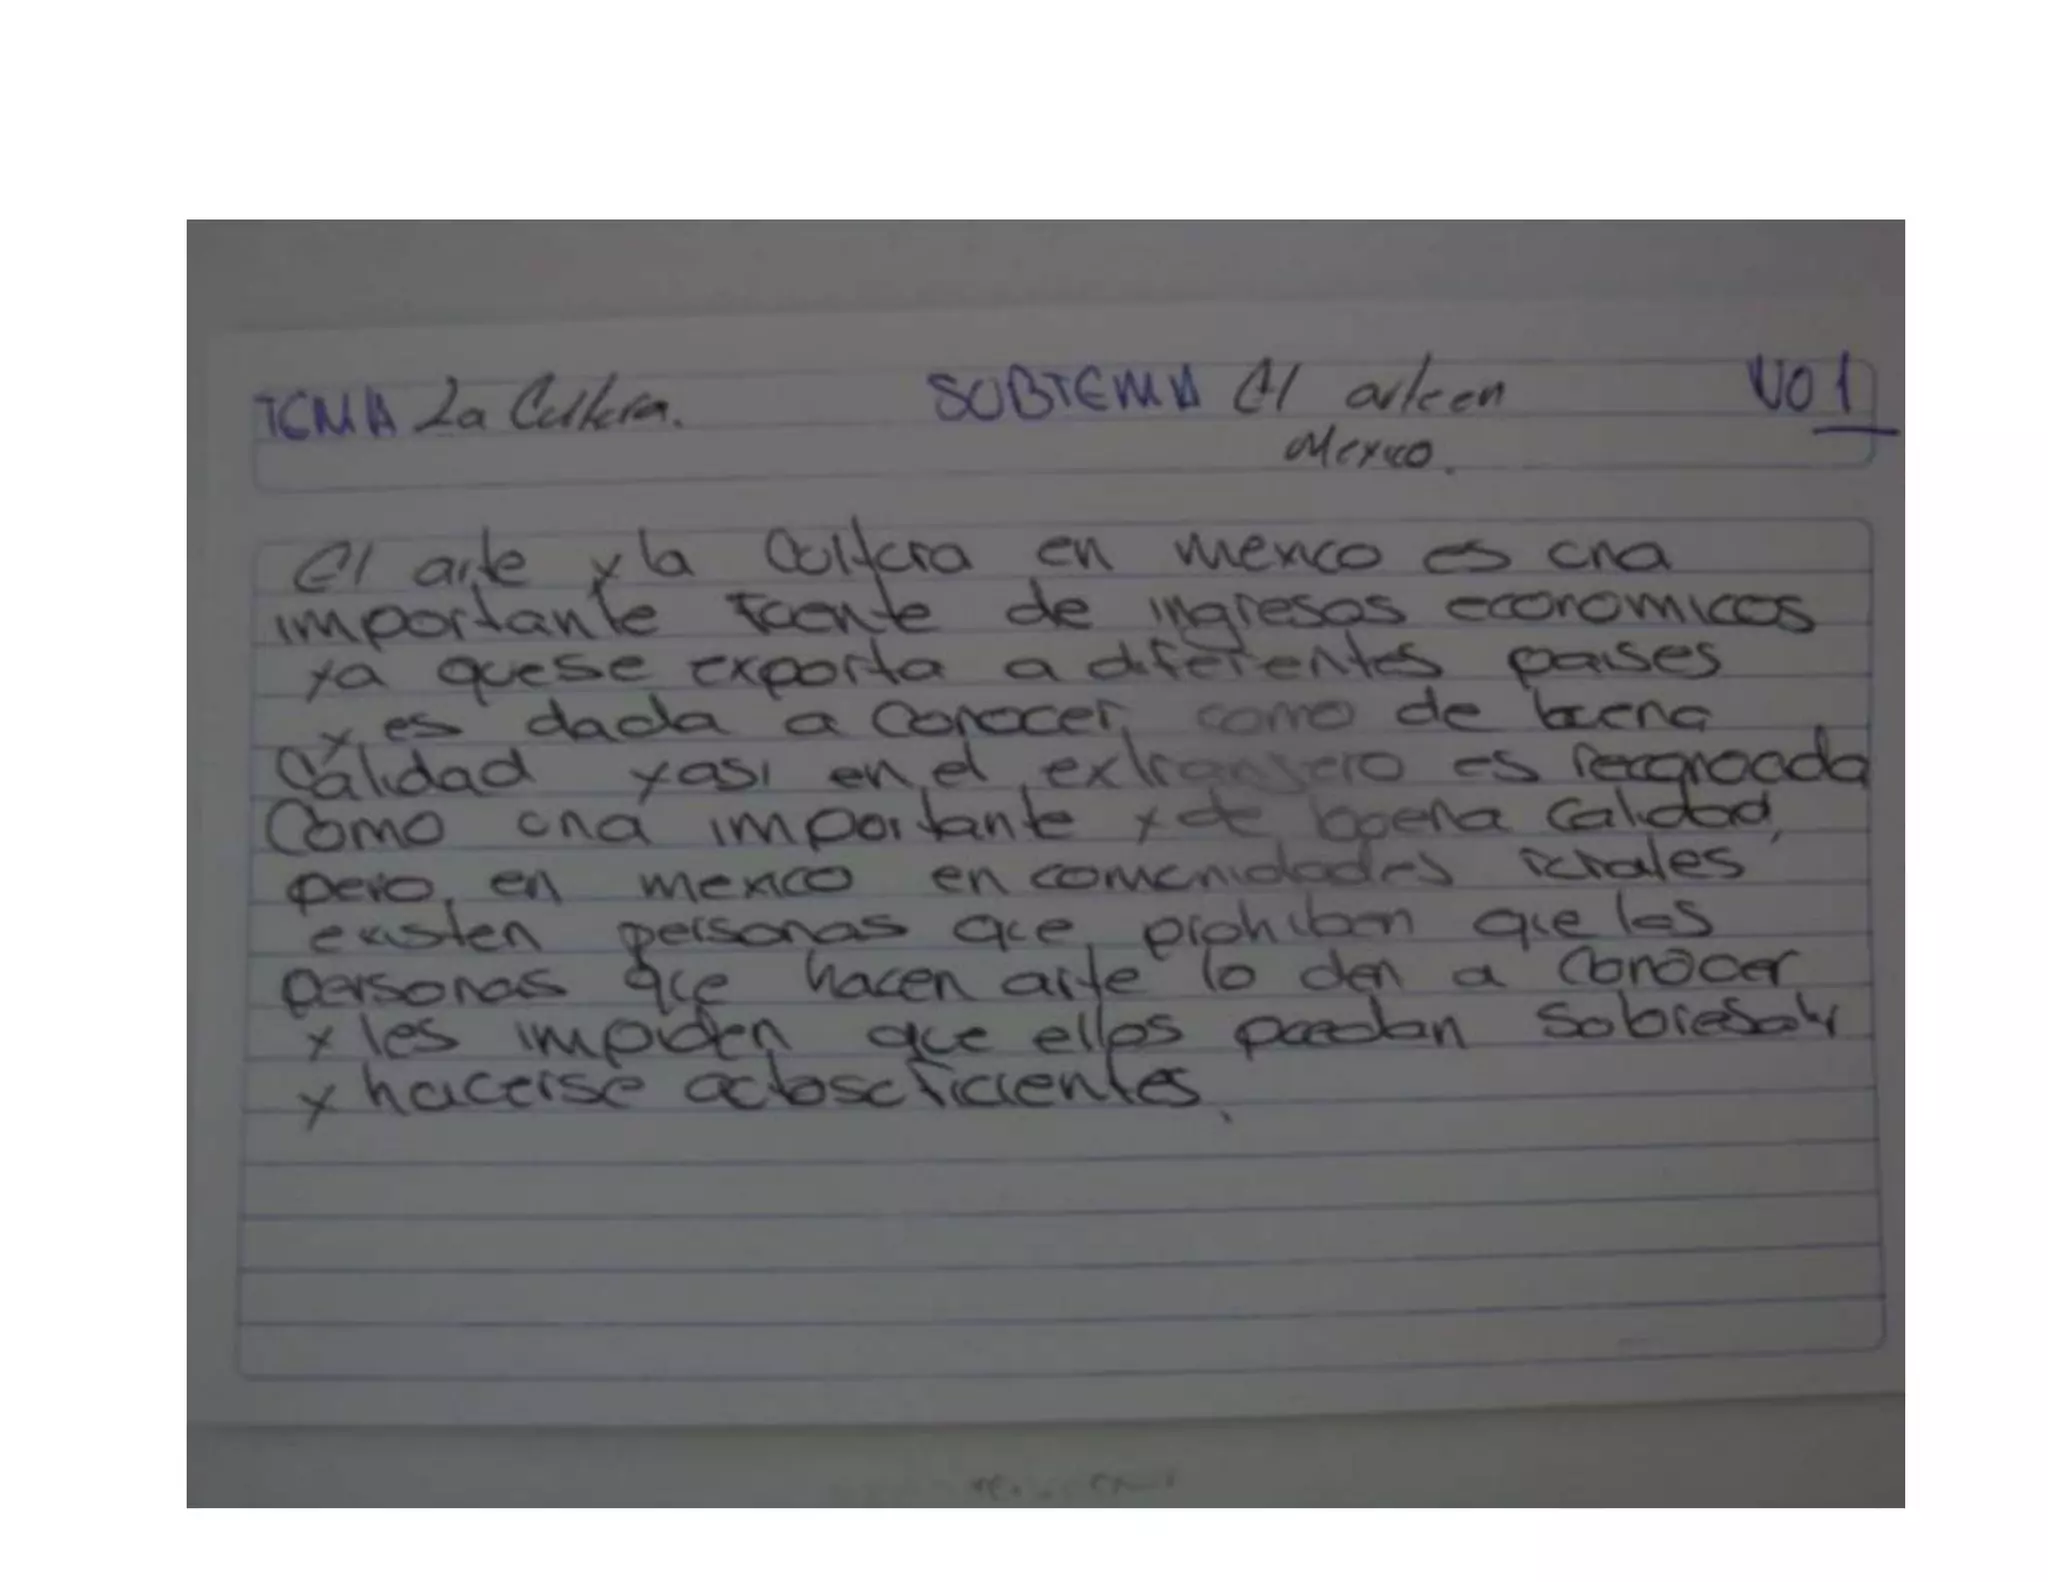 TEMA La Cultura. SUBTEMA El arte en NO 1
Mexico.
El arte y la Cultura en mexico es una
importante fuente de ingresos economicos
ya que se exporta a diferentes paises
y es dada a conocer como de buena
Calidad y asi en el extranjero es recognocida
Como una importante y de buena calidad,
pero, en mexico en comunidades rurales
existen personas que prohiben que las
personas que hacen arte lo den a conocer
y les impiden que ellos puedan sobresalir
y hacerse autosuficientes.